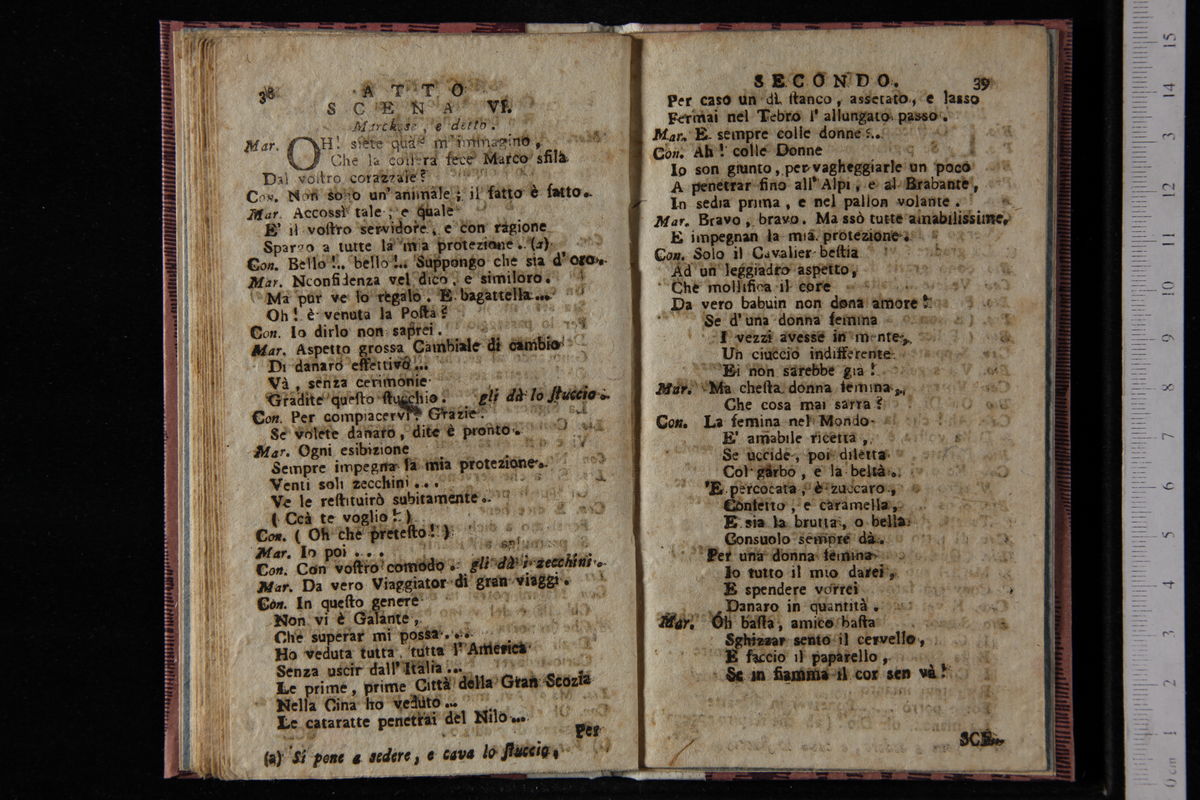 38
ATTO
SCENA VI.
Marchese, e detto.
Mar. OH! siete quà? m'immagino,
Che la collera fece Marco sfila
Dal vostro corazzale?
Con. Non sono un'animale; il fatto è fatto.
Mar. Accossì tale, e quale
E' il vostro servidore, e con ragione
Spargo a tutte la mia protezione. (a)
Con. Bello!.. bello!.. Suppongo che sia d'oro.
Mar. Nconfidenza vel dico, e similoro.
Ma pur ve lo regalo. E bagattella...
Oh! è venuta la Posta?
Con. Io dirlo non saprei.
Mar. Aspetto grossa Cambiale di cambio
Di danaro effettivo...
Và, senza cerimonie
Gradite questo stucchio. gli dà lo stuccio.
Con. Per compiacervi? Grazie.
Se volete danaro, dite è pronto.
Mar. Ogni esibizione
Sempre impegna la mia protezione.
Venti soli zecchini...
Ve le restituirò subitamente.
(Ccà te voglio!)
Con. (Oh che pretesto!)
Mar. Io poi...
Con. Con vostro comodo. gli dà i zecchini.
Mar. Da vero Viaggiator di gran viaggi.
Con. In questo genere
Non vi è Galante,
Che superar mi possa...
Ho veduta tutta, tutta l'America
Senza uscir dall'Italia...
Le prime, prime Città della Gran Scozia
Nella Cina ho veduto...
Le cataratte penetrai del Nilo...
Per
(a) Si pone a sedere, e cava lo stuccio,
SECONDO.
39
Per caso un dì stanco, assetato, e lasso
Fermai nel Tebro l'allungato passo.
Mar. E sempre colle donne?..
Con. Ah! colle Donne
Io son giunto, per vagheggiarle un poco
A penetrar fino all'Alpi, e al Brabante,
In sedia prima, e nel pallon volante.
Mar. Bravo, bravo. Ma ssò tutte amabilissime,
E impegnan la mia protezione.
Con. Solo il Cavalier bestia
Ad un leggiadro aspetto,
Che mollifica il core
Da vero babuin non dona amore!
Se d'una donna femina
I vezzi avesse in mente,
Un ciuccio indifferente
Ei non sarebbe gia!
Mar. Ma chesta donna femina,
Che cosa mai sarra?
Con. La femina nel Mondo
E' amabile ricetta,
Se uccide, poi diletta
Col garbo, e la beltà.
E percocata, è zuccaro,
Confetto, e caramella,
E sia la brutta, o bella
Consuolo sempre dà.
Per una donna femina
Io tutto il mio darei,
E spendere vorrei
Danaro in quantità.
Mar. Oh basta, amico basta
Sghizzar sento il cervello,
E faccio il paparello,
Se in fiamma il cor sen và!
SCE-